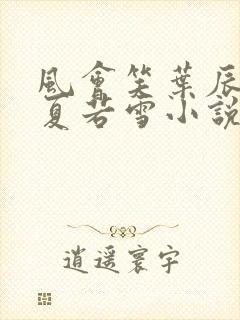 風會笑葉辰
夏若雪小說
逍遥寰宇